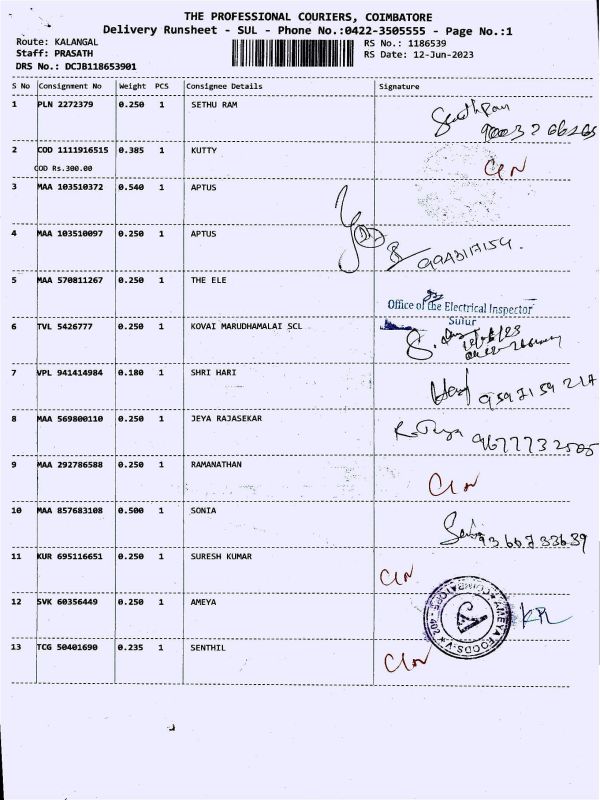 THE PROFESSIONAL COURIERS, COIMBATORE
Delivery Runsheet - SUL - Phone No.:0422-3505555 - Page No.:1
Route: KALANGAL
RS No.: 1186539
Staff: PRASATH
RS Date: 12-Jun-2023
DRS No.: DCJB118653901
S No Consignment No Weight PCS Consignee Details Signature
1 PLN 2272379 0.250 1 SETHU RAM
2 COD 1111916515 0.385 1 KUTTY
COD Rs.300.00
3 MAA 103510372 0.540 1 APTUS
4 MAA 103510097 0.250 1 APTUS
5 MAA 570811267 0.250 1 THE ELE
Office of the Electrical Inspector
Sulur
6 TVL 5426777 0.250 1 KOVAI MARUDHAMALAI SCL
7 VPL 941414984 0.180 1 SHRI HARI
8 MAA 569800110 0.250 1 JEYA RAJASEKAR
9 MAA 292786588 0.250 1 RAMANATHAN
10 MAA 857683108 0.500 1 SONIA
11 KUR 695116651 0.250 1 SURESH KUMAR
12 SVK 60356449 0.250 1 AMEYA
AMEYA FOODS
13 TCG 50401690 0.235 1 SENTHIL